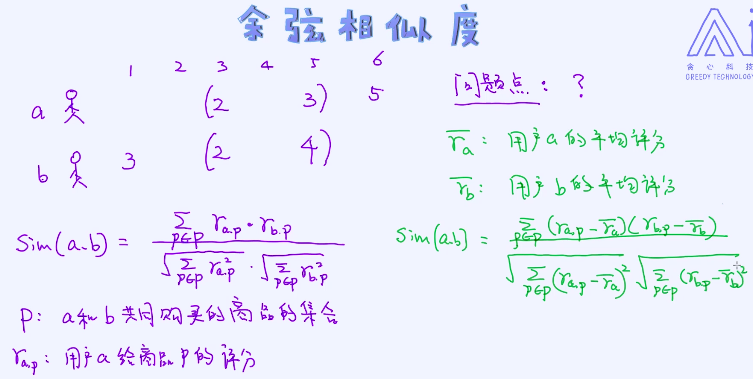 余弦相似度
贪心科技
GREEDY TECHNOLOGY
1 2 3 4 5 6
a (2 3) 5
b 3 (2 4)
Sim(a·b) = ∑_{p∈P} r_{a,p} · r_{b,p} / √(∑_{p∈P} r_{a,p}²) · √(∑_{p∈P} r_{b,p}²)
P: a和b共同购买的商品的集合
r_{a,p}: 用户a给商品P的评分
问题点: ?
r̅_a: 用户a的平均评分
r̅_b: 用户b的平均评分
Sim(a,b) = ∑_{p∈P} (r_{a,p} - r̅_a)(r_{b,p} - r̅_b) / √(∑_{p∈P} (r_{a,p} - r̅_a)²) √(∑_{p∈P} (r_{b,p} - r̅_b)²)